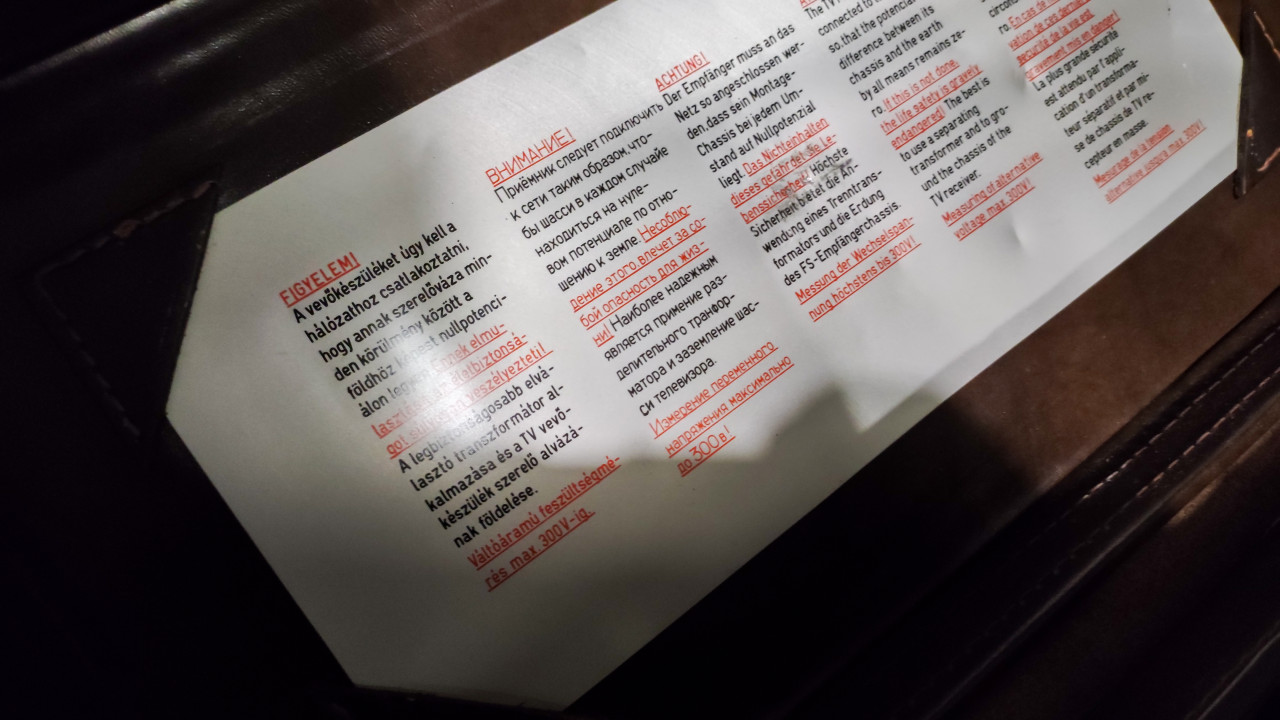 FIGYELEM!
A vevőkészüléket úgy kell a
hálózathoz csatlakoztatni,
hogy annak szerelőváza min-
den körülmény között a
földhöz képest nullpotenci-
álon legyen. Ennek elmu-
got súlyosan veszélyezteti!
A legbiztonságosabb elvá-
lasztó transzformátor al-
kalmazása és a TV vevő-
készülék szerelő alvázá-
nak földelése.
Váltóáramú feszültségmé-
rés max. 300V-ig.
ВНИМАНИЕ!
Приёмник следует подключить
к сети таким образом, что-
бы шасси в каждом случае
находиться на нуле-
вом потенциале по отно-
шению к земле. Несоблю-
дение этого влечет за со-
бой опасность для жиз-
ни! Наиболее надежным
является примение раз-
делительного транфор-
матора и заземление шас-
си телевизора.
Измерение переменного
напряжения максимально
до 300 в!
ACHTUNG!
Der Empfänger muss an das
Netz so angeschlossen wer-
den, dass sein Montage-
Chassis bei jedem Um-
stand auf Nullpotenzial
liegt. Das Nichteinhalten
dieses gefährdet die Le-
benssicherheit! Höchste
Sicherheit bietet die An-
wendung eines Trenntrans-
formators und die Erdung
des FS-Empfängerchassis.
Messung der Wechselspan-
nung höchstens bis 300V!
The TV
connected to
so, that the potencial
difference between its
chassis and the earth
by all means remains ze-
ro. If this is not done,
the life safety is gravely
endangered! The best is
to use a separating
transformer and to gro-
und the chassis of the
TV receiver.
Measuring of alternative
voltage max. 300V!
ro. En cas de
vation de ces dernier
securité de la vie est
gravement mis en danger!
La plus grande securité
est attendu par l'appli-
cation d'un transforma-
teur séparatif et par mi-
se de chassis de TV re-
cepteur en masse.
Mesurage de la tension
alternative jusqu'a max. 300V!